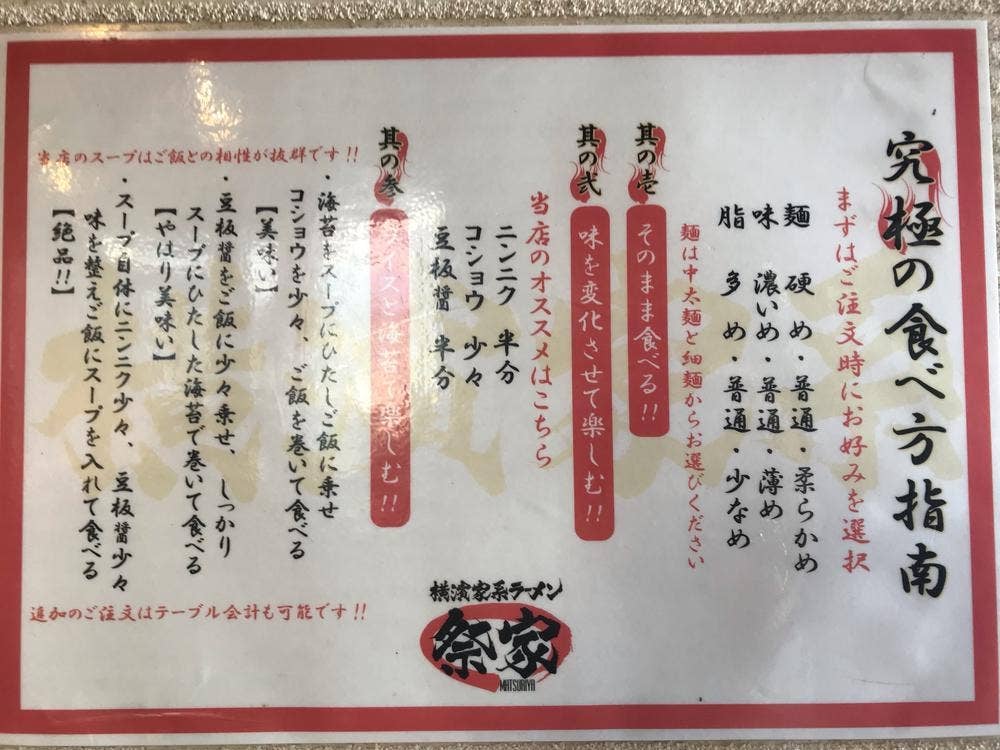 究極の食べ方指南
まずはご注文時にお好みを選択
麺 硬め・普通・柔らかめ
味 濃いめ・普通・薄め
脂 多め・普通・少なめ
麺は中太麺と細麺からお選びください
其の壱 そのまま食べる!!
其の弐 味を変化させて楽しむ!!
当店のオススメはこちら
ニンニク 半分
コショウ 少々
豆板醤 半分
其の参 ライスと海苔で楽しむ!!
・海苔をスープにひたしご飯に乗せ
コショウを少々、ご飯を巻いて食べる
【美味い】
・豆板醤をご飯に少々乗せ、しっかり
スープにひたした海苔で巻いて食べる
【やはり美味い】
・スープ自体にニンニク少々、豆板醤少々
味を整えご飯にスープを入れて食べる
【絶品!!】
当店のスープはご飯との相性が抜群です!!
追加のご注文はテーブル会計も可能です!!
横濱家系ラーメン
祭家
MATSURIYA